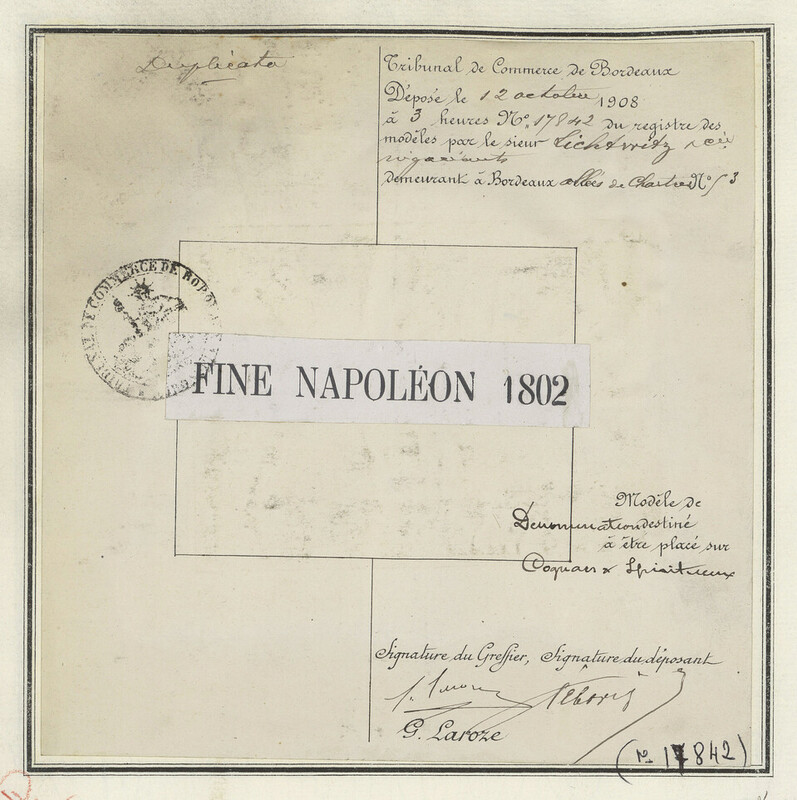 Duplicata
Tribunal de Commerce de Bordeaux
Déposé le 12 octobre 1908
à 3 heures No. 17842 du registre des
modèles par le sieur Lichtwitz
demeurant à Bordeaux allées de Chartres No
TRIBUNAL DE COMMERCE DE BORDEAUX
FINE NAPOLÉON 1802
Modèle de
Denomination destiné
à être placé sur
Cognacs & Spiritueux
Signature du Greffier, Signature du déposant
G. Laroze
(n. 17842)